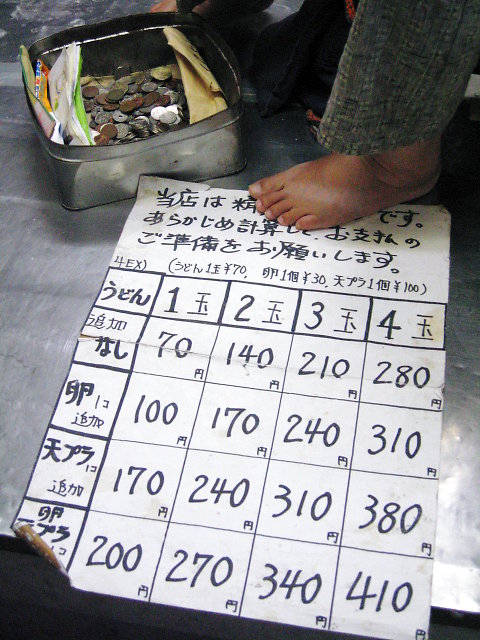 当店は精 です。
あらかじめ計算して、お支払の
ご準備をお願いします。
4EX) (うどん1玉¥70, 卵1個¥30, 天プラ1個¥100)
うどん 1玉 2玉 3玉 4玉
追加なし 70円 140円 210円 280円
卵1コ追加 100円 170円 240円 310円
天プラ1コ追加 170円 240円 310円 380円
卵天プラ1コ 200円 270円 340円 410円